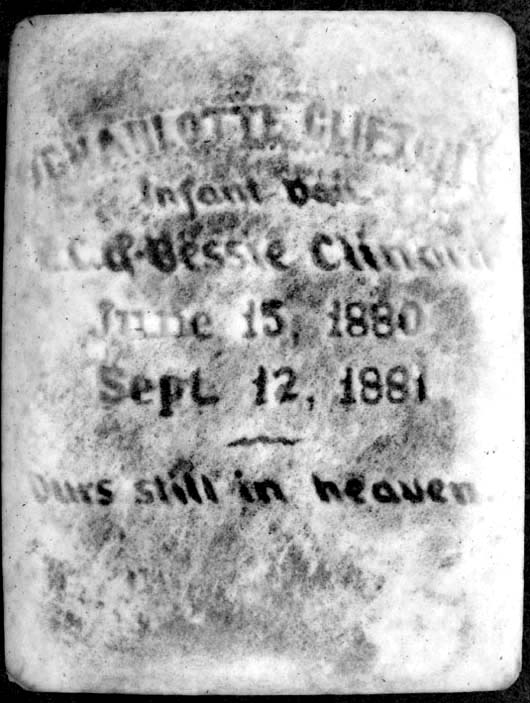 CHARLOTTE CLIFTON
Infant Dau.
E.C. & Bessie Clinard
June 15, 1880
Sept. 12, 1881
Ours still in heaven.